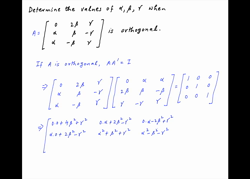 Determine the values of α, β, γ when
A = [ 0 2β γ
α β -γ
α -β γ ] is orthogonal.
If A is orthogonal, AA' = I
⇒ [ 0 2β γ
α β -γ
α -β γ ] [ 0 α α
2β β -β
γ -γ γ ] = [ 1 0 0
0 1 0
0 0 1 ]
⇒ [ 0+4β²+γ² 0+2β²-γ² 0-2β²+γ²
α²+β²+γ² α²-β²-γ²